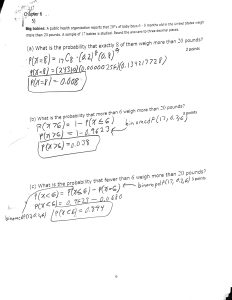 Chapter 6
5)
Big babies: A public health organization reports that 20% of baby boys 6 - 8 months old in the United States weigh
more than 20 pounds. A sample of 17 babies is studied. Round the answers to three decimal places.
(a) What is the probability that exactly 8 of them weigh more than 20 pounds?
2 points
P(X=8) = 17C8 · (0.2)^8 (0.8)^9
P(X=8) = (24310)(0.00000256)(0.134217728)
P(X=8) = 0.008
(b) What is the probability that more than 6 weigh more than 20 pounds?
P(X>6) = 1 - P(X≤6)
P(X>6) = 1 - 0.9623
binomcdf(17, 0.2, 6)
P(X>6) = 0.038
(c) What is the probability that fewer than 6 weigh more than 20 pounds?
P(X<6) = P(X≤6) - P(X=6)
binompdf(17, 0.2, 6)
P(X<6) = 0.9623 - 0.0680
P(X<6) = 0.894